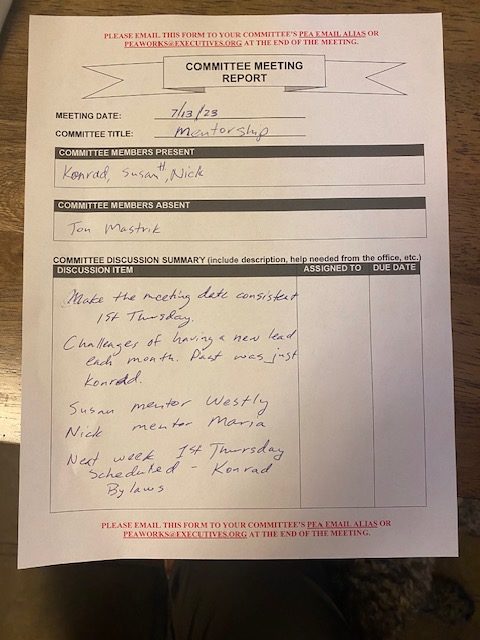 PLEASE EMAIL THIS FORM TO YOUR COMMITTEE'S PEA EMAIL ALIAS OR
PEAWORKS@EXECUTIVES.ORG AT THE END OF THE MEETING.
COMMITTEE MEETING
REPORT
MEETING DATE: 7/13/23
COMMITTEE TITLE: Mentorship
COMMITTEE MEMBERS PRESENT
Konrad, Susan H, Nick
COMMITTEE MEMBERS ABSENT
Tom Mastrik
COMMITTEE DISCUSSION SUMMARY (include description, help needed from the office, etc.)
DISCUSSION ITEM ASSIGNED TO DUE DATE
Make the meeting date consistent
1st Thursday.
Challenges of having a new lead
each month. Past was just
Konrad.
Susan mentor Westly
Nick mentor Maria
Next week 1st Thursday
Scheduled - Konrad
Bylaws
PLEASE EMAIL THIS FORM TO YOUR COMMITTEE'S PEA EMAIL ALIAS OR
PEAWORKS@EXECUTIVES.ORG AT THE END OF THE MEETING.